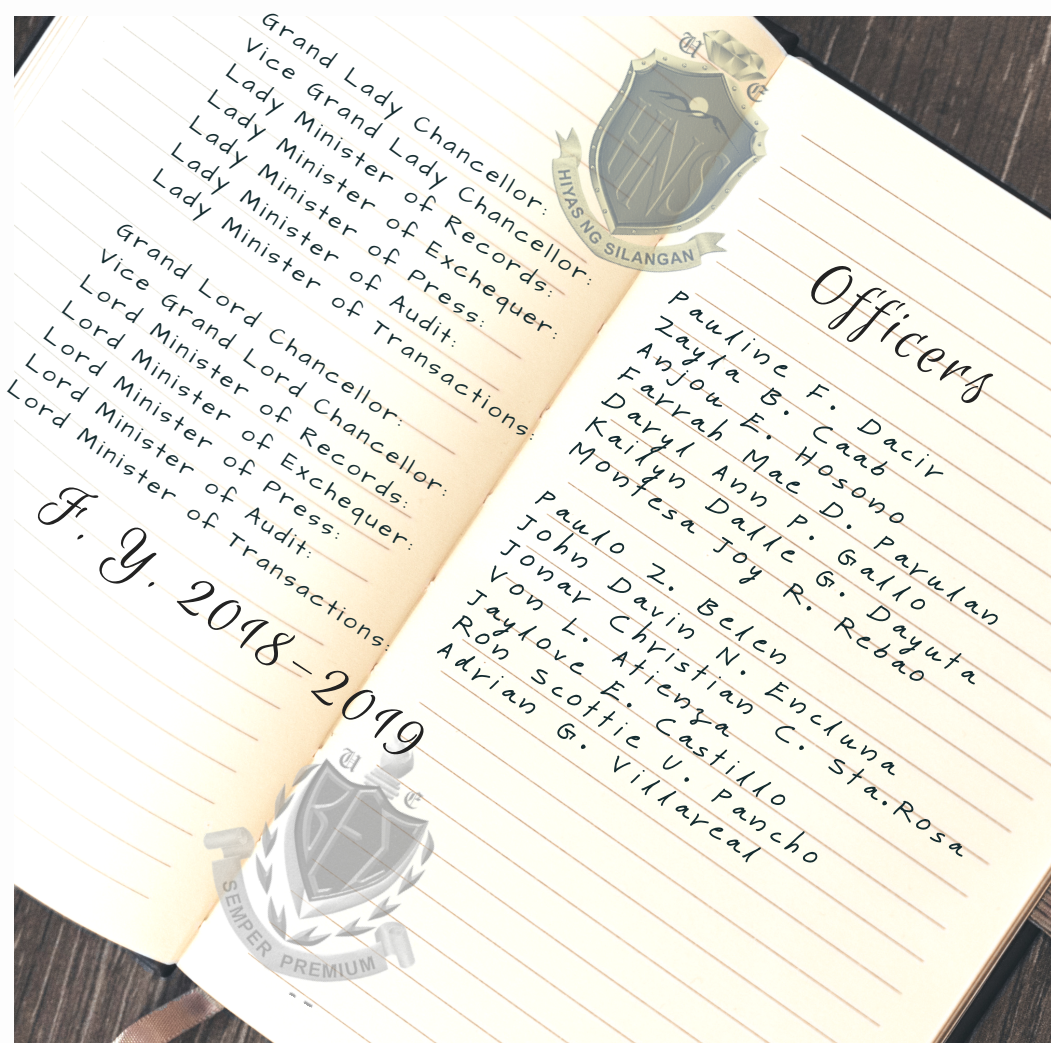 Grand Lady Chancellor:
Vice Grand Lady Chancellor:
Lady Minister of Records:
Lady Minister of Exchequer:
Lady Minister of Press:
Lady Minister of Audit:
Lady Minister of Transactions:
Grand Lord Chancellor:
Vice Grand Lord Chancellor:
Lord Minister of Records:
Lord Minister of Exchequer:
Lord Minister of Press:
Lord Minister of Audit:
Lord Minister of Transactions:
F. Y. 2018-2019
U E
HNS
HIYAS NG SILANGAN
Officers
Pauline F. Dacir
Zayla B. Caab
Anjou E. Hosono
Farrah Mae D. Parulan
Daryl Ann P. Gallo
Kailyn Dalle G. Dayuta
Montesa Joy R. Rebao
Paulo Z. Belen
John Davin N. Encluna
Jonar Christian C. Sta.Rosa
Von L. Atienza
Jaylove E. Castillo
Ron Scottie U. Pancho
Adrian G. Villareal
U E
SEMPER PREMIUM